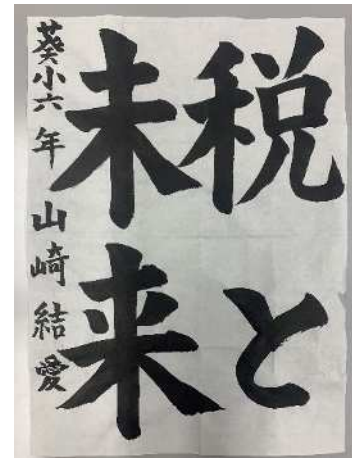 税と
未来
葵小六年 山崎結愛